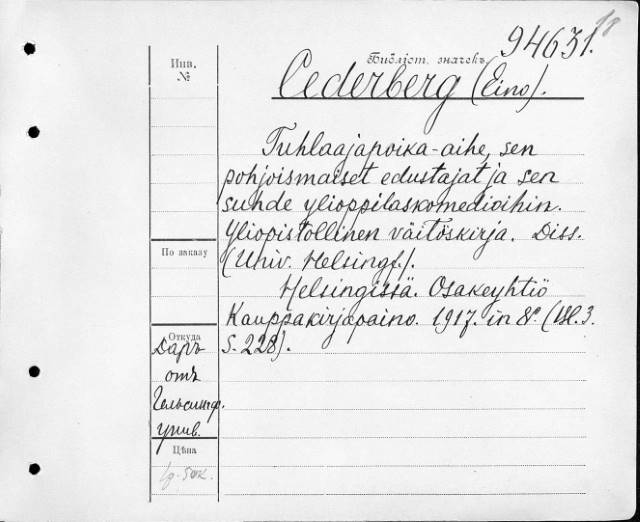 94631.
18
Инв.
№
Библіот. значекъ
Cederberg (Eino).
Tuhlaajapoika-aihe, sen
pohjoismaiset edustajat ja sen
suhde ylioppilaskomedioihin.
Yliopistollinen väitöskirja. Diss.
(Univ. Helsingf.).
Helsingissä. Osakeyhtiö
Kauppakirjapaino. 1917. in 8°. (Bl. 3.
S. 228).
По заказу
Откуда
Даръ
отъ
Гельсингф.
унив.
Цѣна